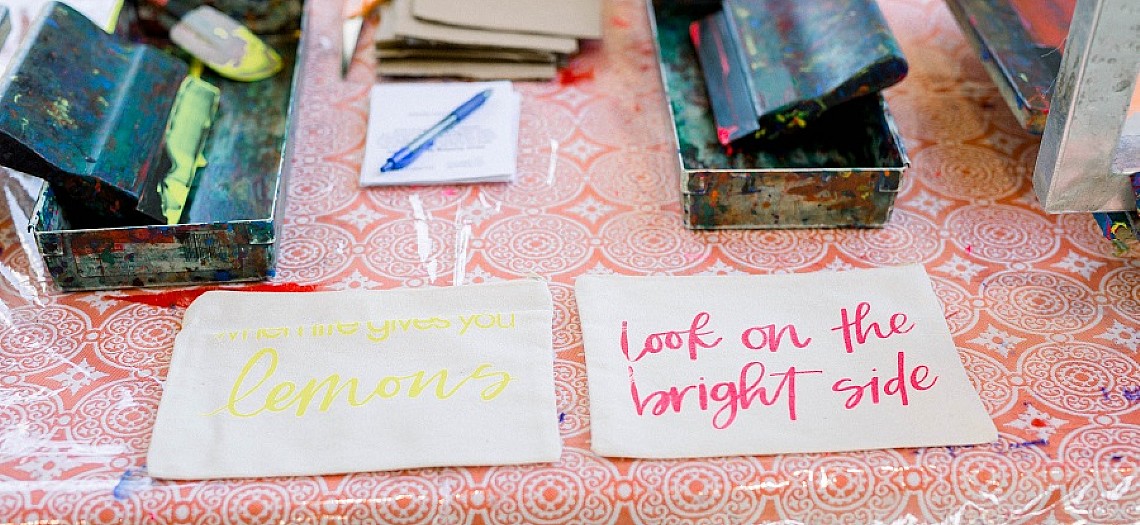 when life gives you
lemons
look on the
bright side